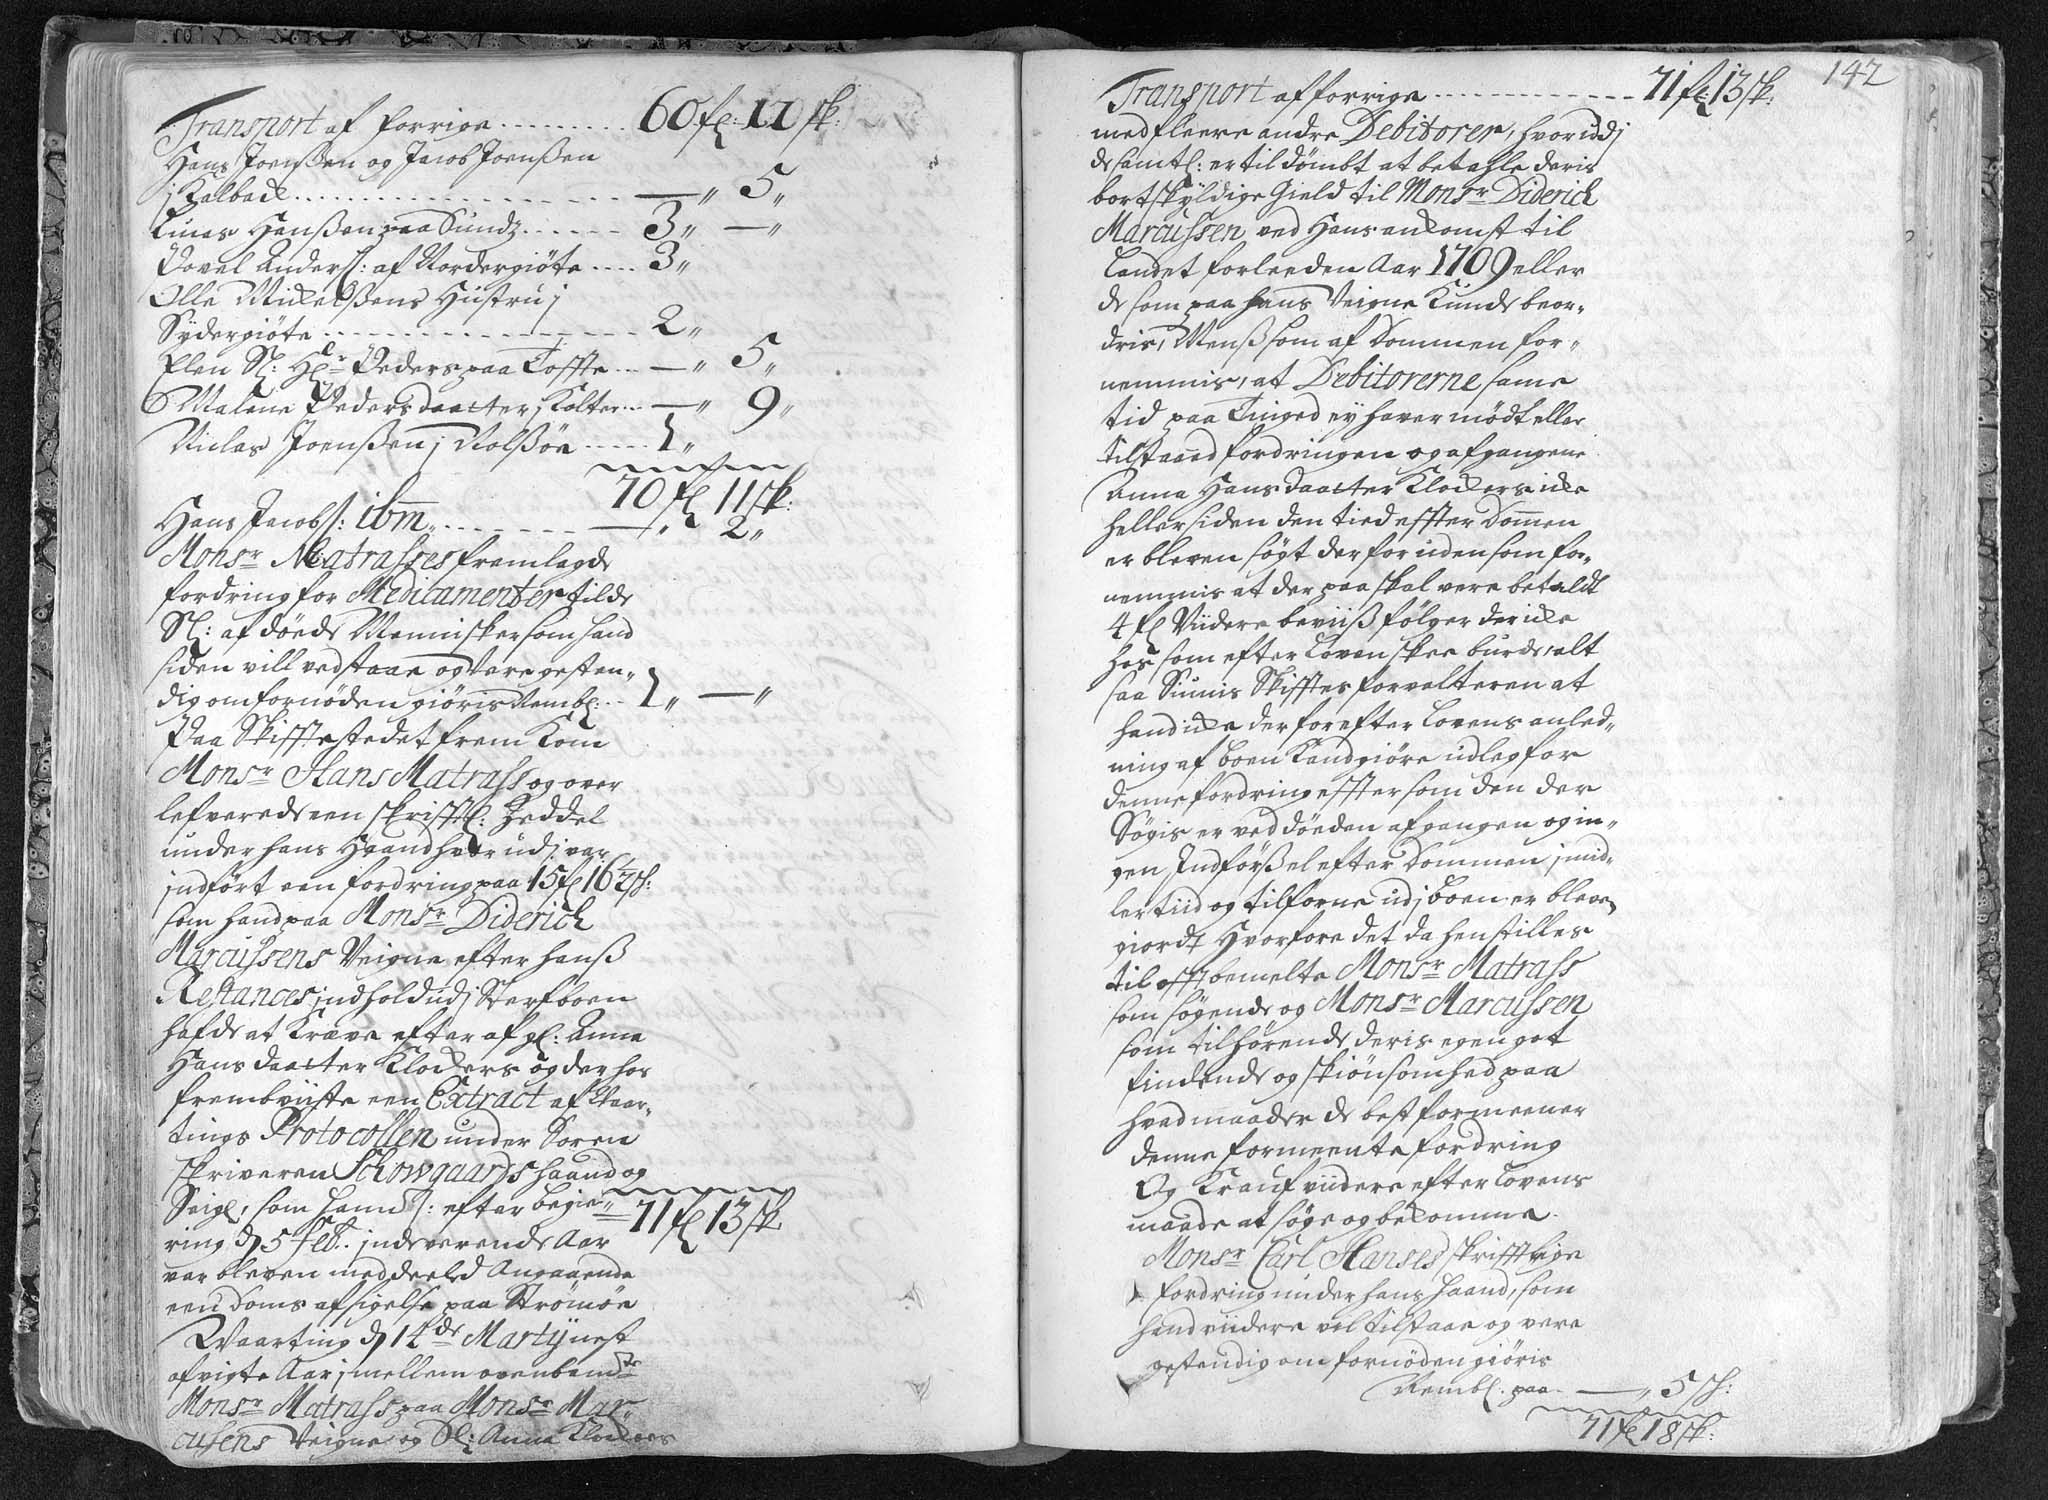 Transport af forrige ......... 60 fl: 11 sk:
Hans Joenßen og Jacob Joenßen
i Kalbak ......... — „ 5 „
Lucas Hanßen paa Sundz ...... 3 „ — „
Povel Anders: af Nordergiöte .... 3 „
Olle Mickelßens Hustru i
Sydergiöte ......... 2 „
Elen Sl: Hr Peders paa Toffte ... — „ 5 „
Malene Pedersdaatter i Kolter ... — „ 9 „
Niclas Joenßen i Nolßöe ..... 1 „
70 fl 11 sk:
Hans Jacobs: ibm „ ....... — „ 2 „
Monsr Matrasses fremlagde
fordring for Medicamenter til de
Sl: afdöede Mennisker som hand
siden vill vedstaae og være gesten„
dig om fornöden giöris Nembl: .. 1 „ — „
Paa Skiffte stedet frem kom
Monsr Hans Matrass og over
lefverede een skrifftl: Zeddel
under hans Haand hvor udj var
indfört een fordring paa 15 fl 16½ s:
som hand paa Monsr Diderich
Marcussens Veigne efter hanß
Restances indhold udj Sterfboen
hafde at Kræve efter afgl: Anna
Hansdaatter Klockers og der hos
frembviiste een Extract af Vaar„
tings Protocollen under Soren
skriveren Schowgaards haand og
Seigl, som ham s: efter begie„ 71 fl 13 sk
ring d 5 Feb: indeverende Aar
var bleven meddeeled Angaaende
een Doms afsigelse paa Strömöe
Waarting d 14de Martij nest
afvigte Aar imellem ovenbemte
Monsr Matrass paa Monsr Mar„
cussens Veigne og Sl: Anna Klockers
142
Transport af forrige ............ 71 fl: 13 sk:
med fleere andre Debitorer, hvor udj
de samtl: er tildömbt at betahle deris
bortskyldige Gield til Monsr Diderich
Marcussen ved Hans ankomst til
Landet forleeden Aar 1709 eller
de som paa hans Veigne Kunde beor„
dris, Menß som af Dommen for„
nemmis, at Debitorerne same
tid paa Tinged ey haver mödt eller
tilstaaed fordringen og afgangene
Anna Hansdaatter Klockers icke
heller siden den tied effter Domen
er bleven sögt der for uden som for„
nemmis at der paa skal vere betaldt
4 fl Viidere beviiß fölger der icke
hos som efter Loven skee burde, alt
saa Siunis Skifftes forvalteren at
hand icke der for efter Lovens anled„
ning af boen Kand giöre udleg for
denne fordring effter som den der
Sögis er ved döeden afgangen og in„
gen Indförßel efter Dommen i mid„
lertiid og tilforne udj boen er bleven
giordt Hvorfore det da henstilles
til offtbemelte Monsr Matrass
som sögende og Monsr Marcussen
som tilhörende deris egen got
findende og skiönsomhed paa
hvad maader de best formeener
denne formeente fordring
Og Krauf viidere efter Lovens
maade at söge og bekomme.
Monsr Carl Hanses skrifftlige
fordring under hans haand, som
hand viidere vil tilstaae og vere
gestendig om fornöden giöris
Nembl: paa — „ 5 s:
71 fl 18 sk: